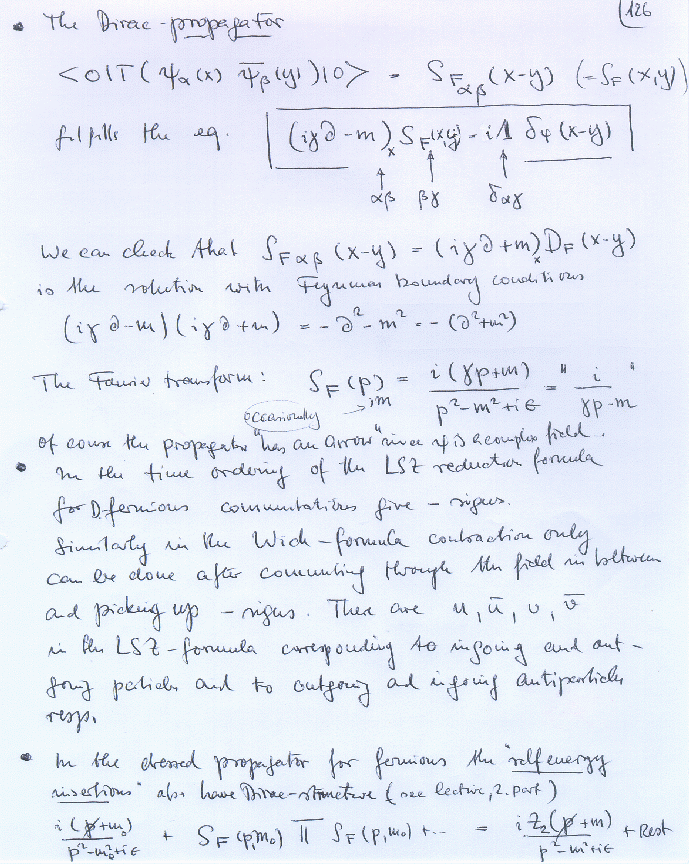 126
• The Dirac-propagator
<0|T(ψ_α(x) ψ̄_β(y))|0> = S_{Fαβ}(x-y) (=S_F(x,y))
fulfills the eq. (iγ∂-m)_x S_F(x,y) = i𝟙 δ_4(x-y)
αβ βγ δ_αγ
We can check that S_{Fαβ}(x-y) = (iγ∂+m)_x D_F(x-y)
is the solution with Feynman boundary conditions
(iγ∂-m)(iγ∂+m) = -∂²-m² = -(∂²+m²)
The Fourier transform: S_F(p) = i(γp+m)/(p²-m²+iϵ) = "i/(γp-m)"
occasionally ,m
Of course the propagator "has an arrow" since ψ is a complex field.
• In the time ordering of the LSZ reduction formula
for D.fermions commutations give - signs.
Similarly in the Wick-formula contraction only
can be done after commuting through the field in between
and picking up - signs. There are u, ū, v, v̄
in the LSZ-formula corresponding to ingoing and out-
going particles and to outgoing and ingoing antiparticles
resp.
• In the dressed propagator for fermions the "self energy
insertions" also have Dirac-structure (see lecture, 2. part)
i(p̸+m₀)/(p²-m₀²+iϵ) + S_F(p,m₀) Π S_F(p,m₀) + ... = iZ₂(p̸+m)/(p²-m²+iϵ) + Rest